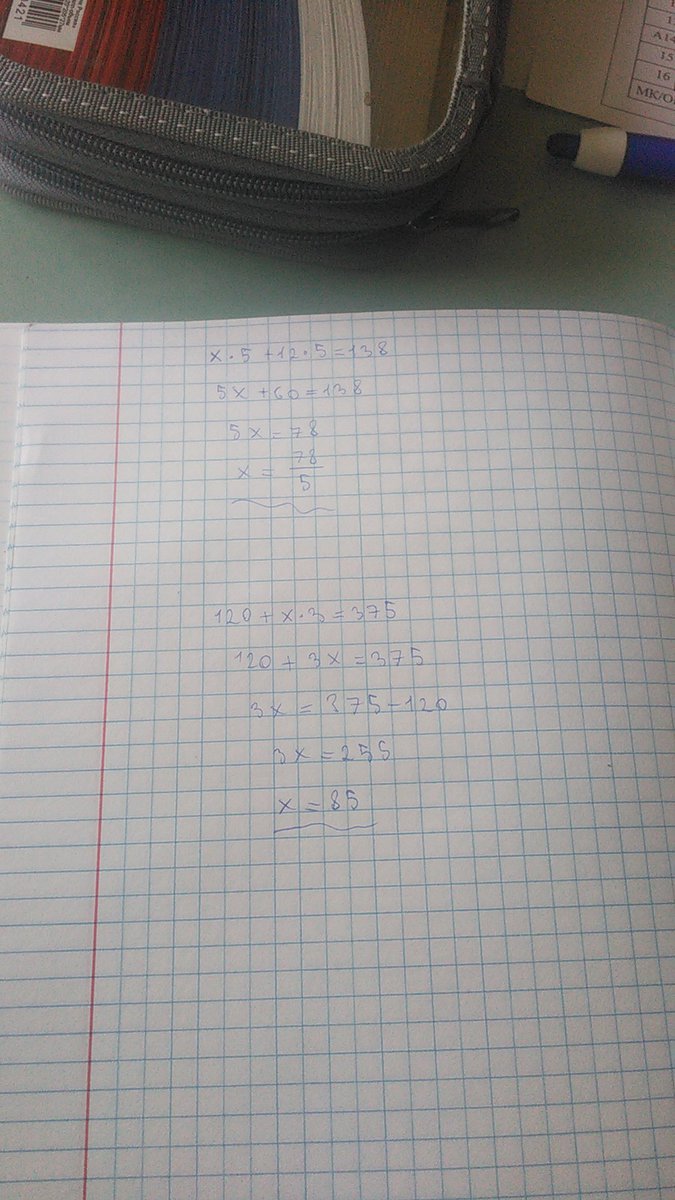 421
1
A14
15
16
МК/О
x · 5 + 12 · 5 = 138
5x + 60 = 138
5x = 78
x = 78/5
120 + x · 3 = 375
120 + 3x = 375
3x = 375 - 120
3x = 255
x = 85